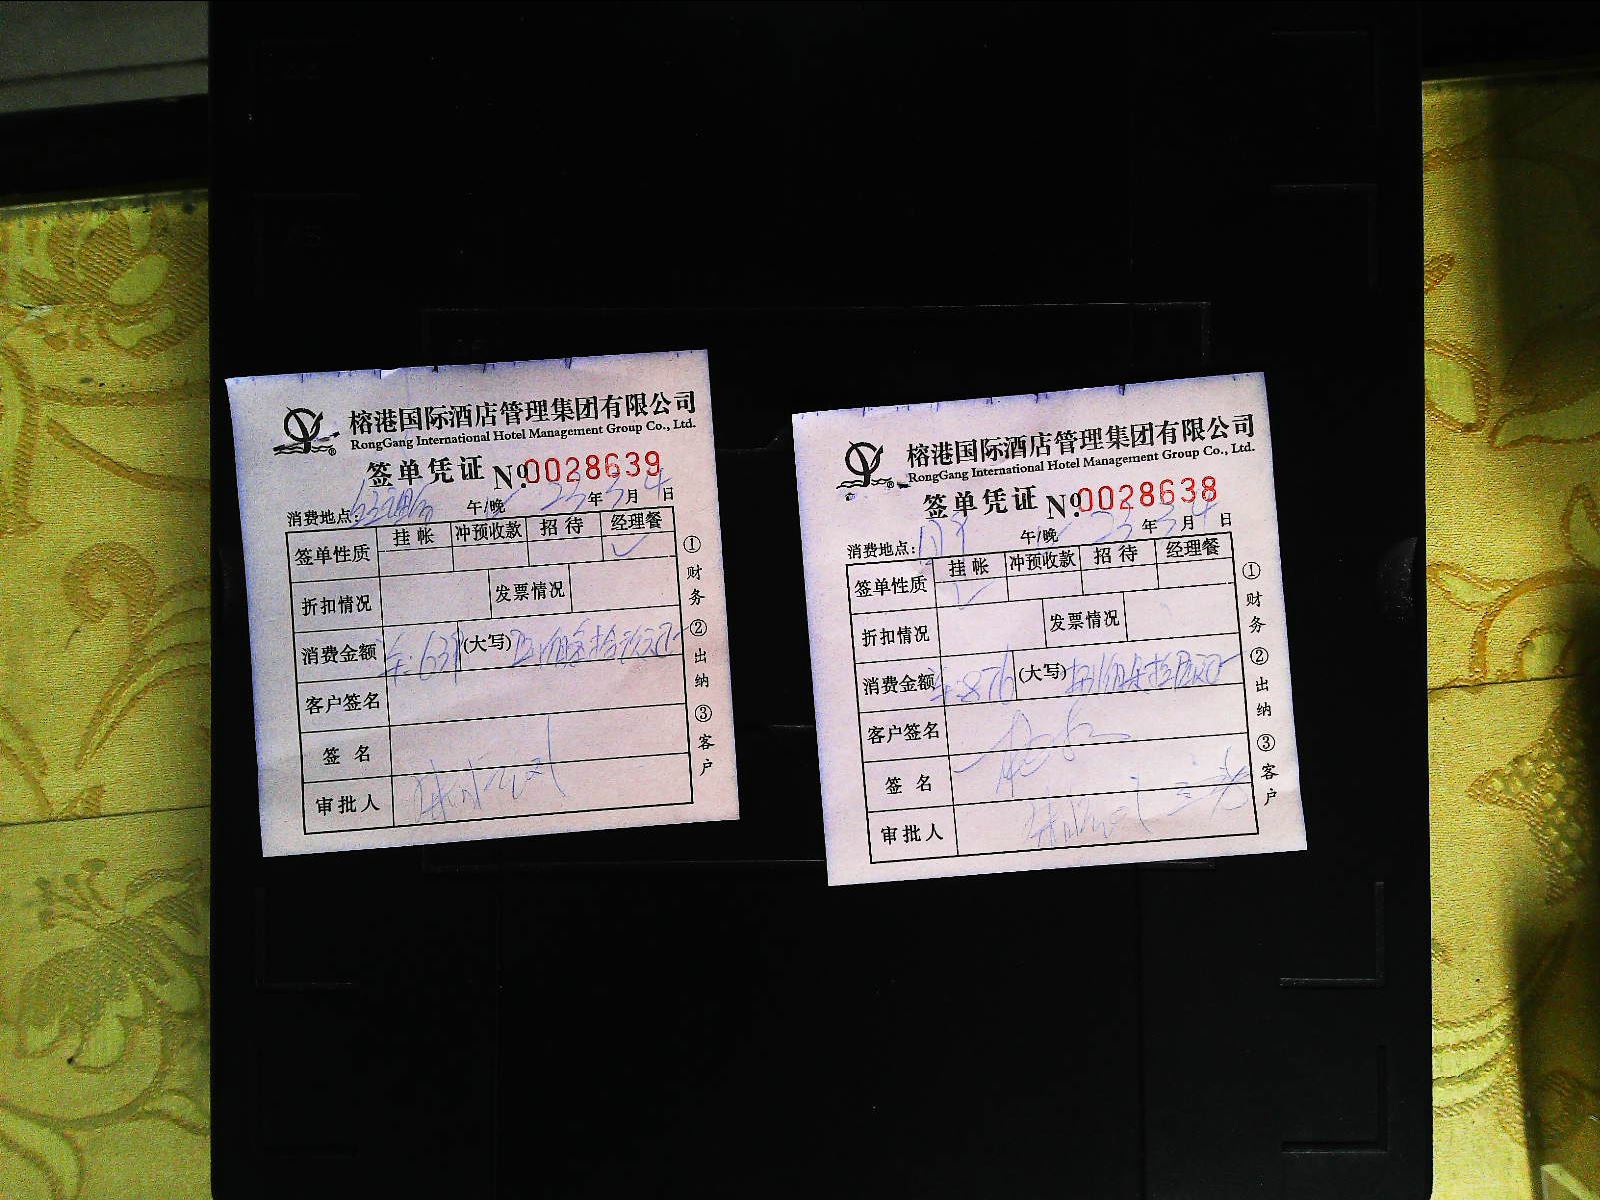 榕港国际酒店管理集团有限公司
RongGang International Hotel Management Group Co., Ltd.
签单凭证 No 0028639
消费地点: 午/晚 23年3月4日
签单性质 挂帐 冲预收款 招待 经理餐
折扣情况 发票情况
消费金额 (大写)
客户签名
签名
审批人
①财务 ②出纳 ③客户
榕港国际酒店管理集团有限公司
RongGang International Hotel Management Group Co., Ltd.
签单凭证 No 0028638
消费地点: 午/晚 23年3月4日
签单性质 挂帐 冲预收款 招待 经理餐
折扣情况 发票情况
消费金额 876 (大写)
客户签名
签名
审批人
①财务 ②出纳 ③客户